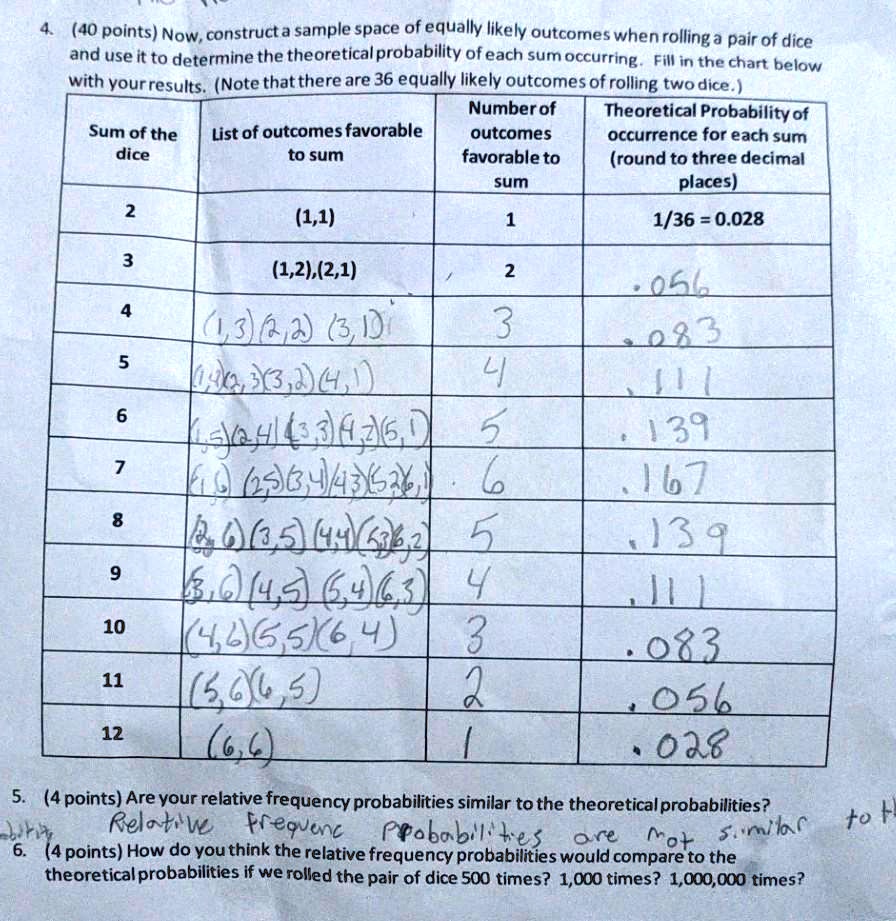 4. (40 points) Now, construct a sample space of equally likely outcomes when rolling a pair of dice
and use it to determine the theoretical probability of each sum occurring. Fill in the chart below
with your results. (Note that there are 36 equally likely outcomes of rolling two dice.)
Sum of the dice List of outcomes favorable to sum Number of outcomes favorable to sum Theoretical Probability of occurrence for each sum (round to three decimal places)
2 (1,1) 1 1/36 = 0.028
3 (1,2),(2,1) 2 .056
4 (1,3) (2,2) (3,1) 3 .083
5 (1,4)(2,3)(3,2)(4,1) 4 .111
6 (1,5)(2,4)(3,3)(4,2)(5,1) 5 .139
7 (1,6) (2,5)(3,4)(4,3)(5,2)(6,1) 6 .167
8 (2,6)(3,5)(4,4)(5,3)(6,2) 5 .139
9 (3,6)(4,5) (5,4)(6,3) 4 .111
10 (4,6)(5,5)(6,4) 3 .083
11 (5,6)(6,5) 2 .056
12 (6,6) 1 .028
5. (4 points) Are your relative frequency probabilities similar to the theoretical probabilities?
Relative frequenc Probabilities are not similar to th
6. (4 points) How do you think the relative frequency probabilities would compare to the
theoretical probabilities if we rolled the pair of dice 500 times? 1,000 times? 1,000,000 times?